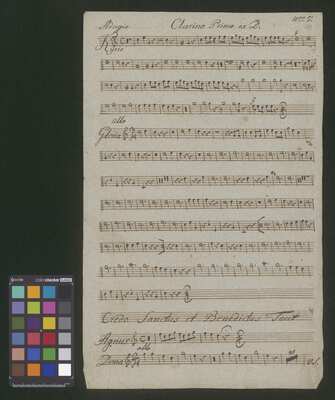 Adagio Clarino Primo in D.
Kyrie
allo
Gloria
Credo Sanctus et Benedictus Tacet
Agnus
allo
Dona